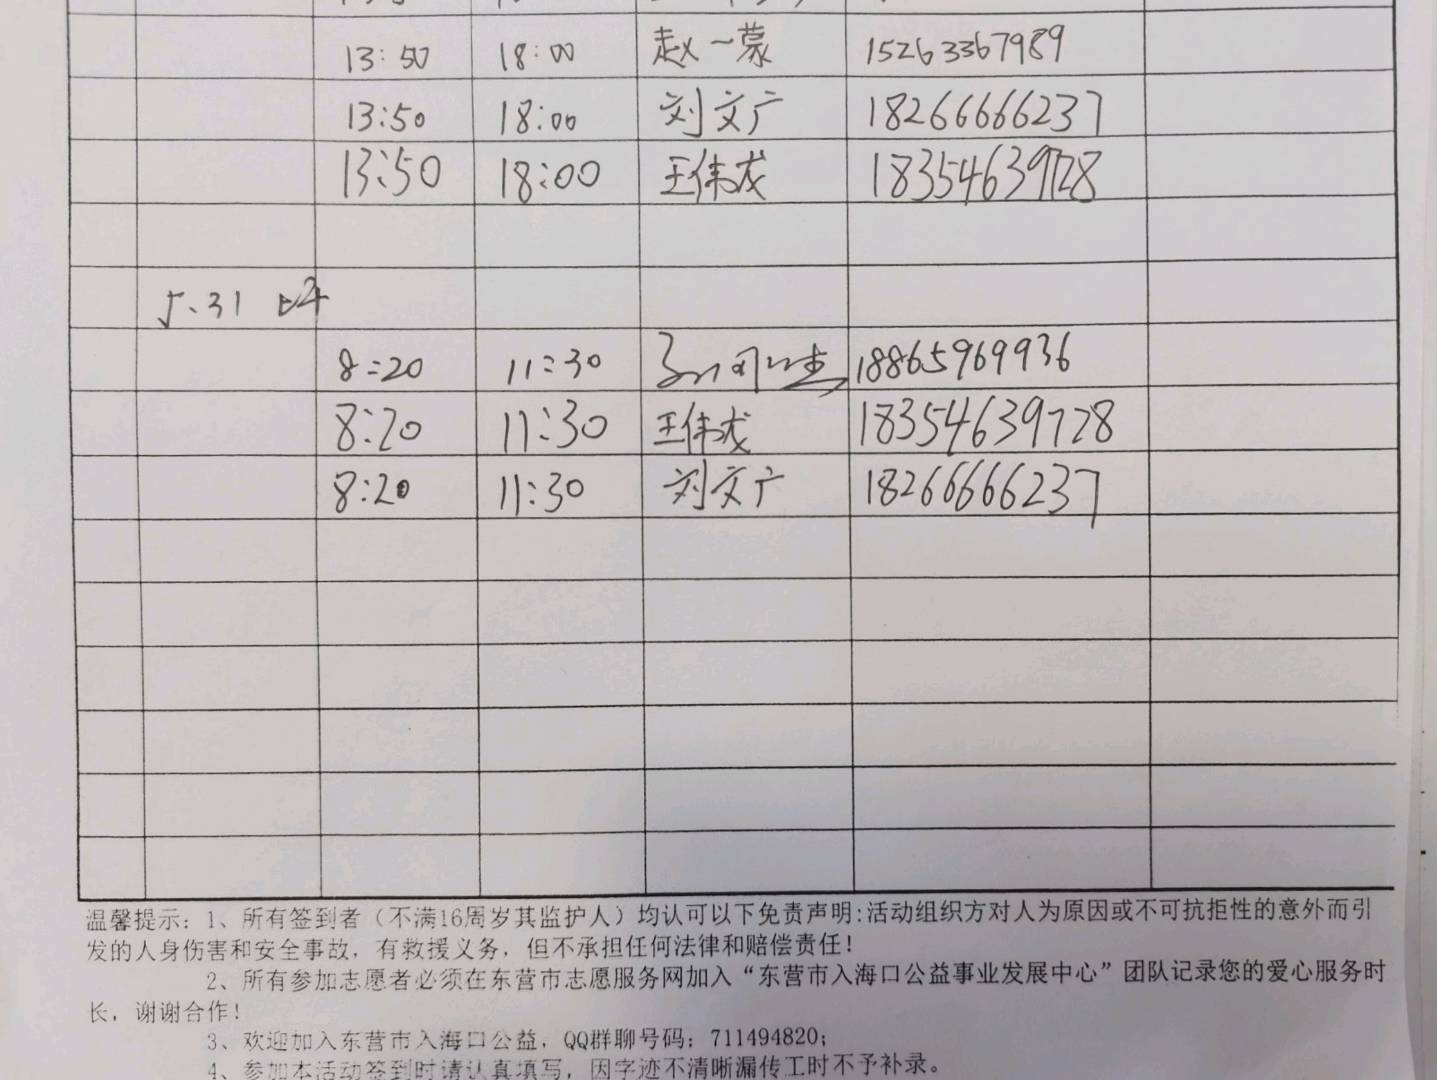 13:50 18:00 赵一蒙 15263367989
13:50 18:00 刘文广 18266666237
13:50 18:00 王伟成 18354639728
5.31 上午
8:20 11:30 18865969936
8:20 11:30 王伟成 18354639728
8:20 11:30 刘文广 18266666237
温馨提示：1、所有签到者（不满16周岁其监护人）均认可以下免责声明:活动组织方对人为原因或不可抗拒性的意外而引
发的人身伤害和安全事故，有救援义务，但不承担任何法律和赔偿责任！
2、所有参加志愿者必须在东营市志愿服务网加入“东营市入海口公益事业发展中心”团队记录您的爱心服务时
长，谢谢合作！
3、欢迎加入东营市入海口公益，QQ群聊号码：711494820；
4、参加本活动签到时请认真填写，因字迹不清晰漏传工时不予补录。